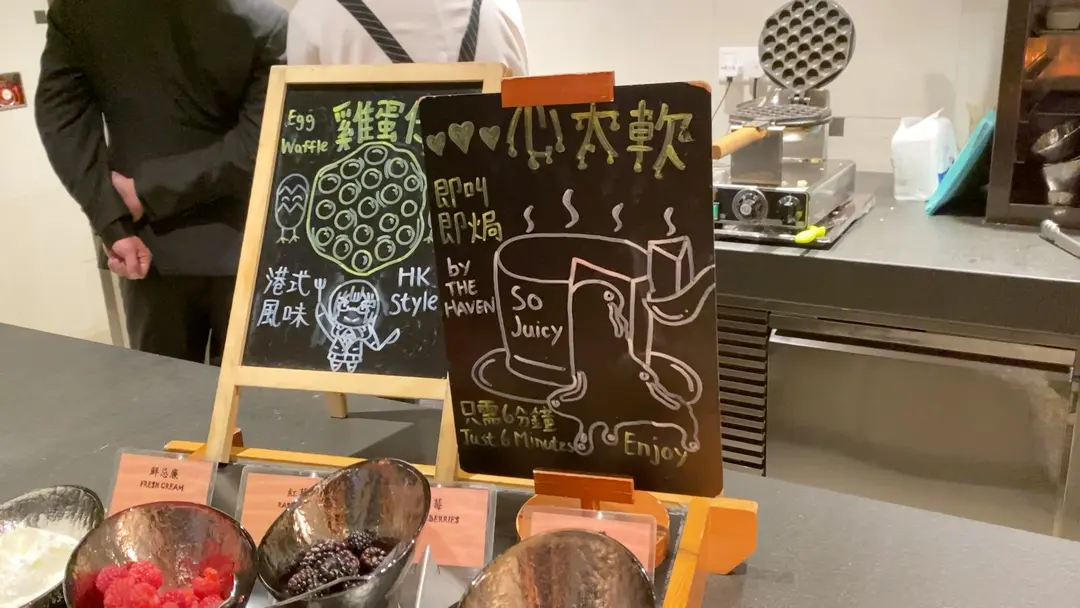 Egg
Waffle
雞蛋仔
港式
風味
HK
Style
心太軟
即叫
即焗
by
THE
HAVEN
So
Juicy
只需6分鐘
Just 6 Minutes
Enjoy
鮮忌廉
FRESH CREAM
紅
莓
BERRIES